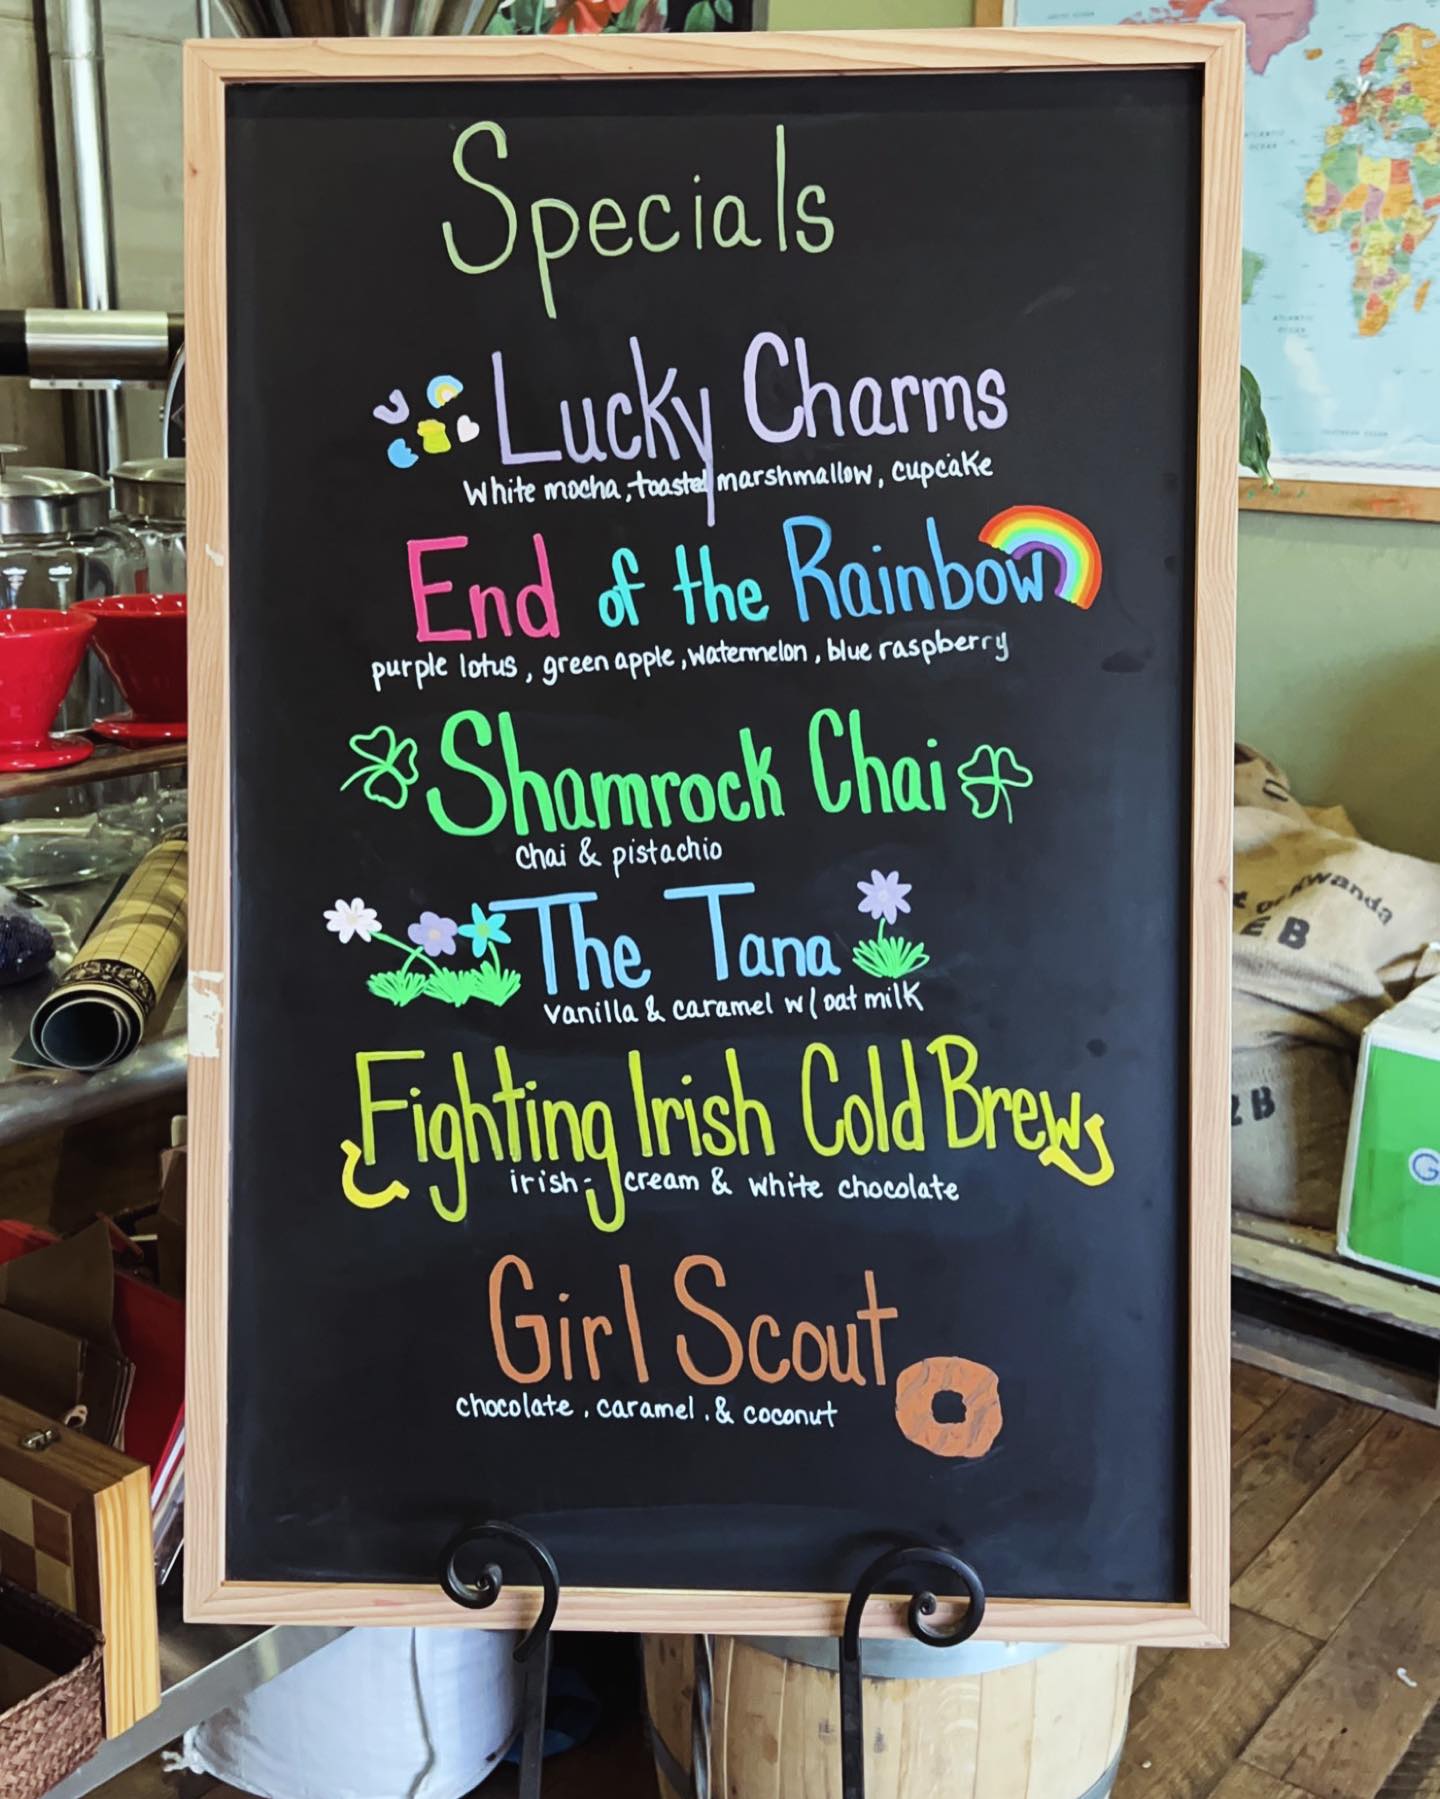 Specials
Lucky Charms
White mocha, toasted marshmallow, cupcake
End of the Rainbow
purple lotus, green apple, watermelon, blue raspberry
Shamrock Chai
chai & pistachio
The Tana
vanilla & caramel w/ oat milk
Fighting Irish Cold Brew
irish-cream & white chocolate
Girl Scout
chocolate, caramel, & coconut
ATLANTIC
OCEAN
ATLANTIC
OCEAN
Rwanda
B
B
G